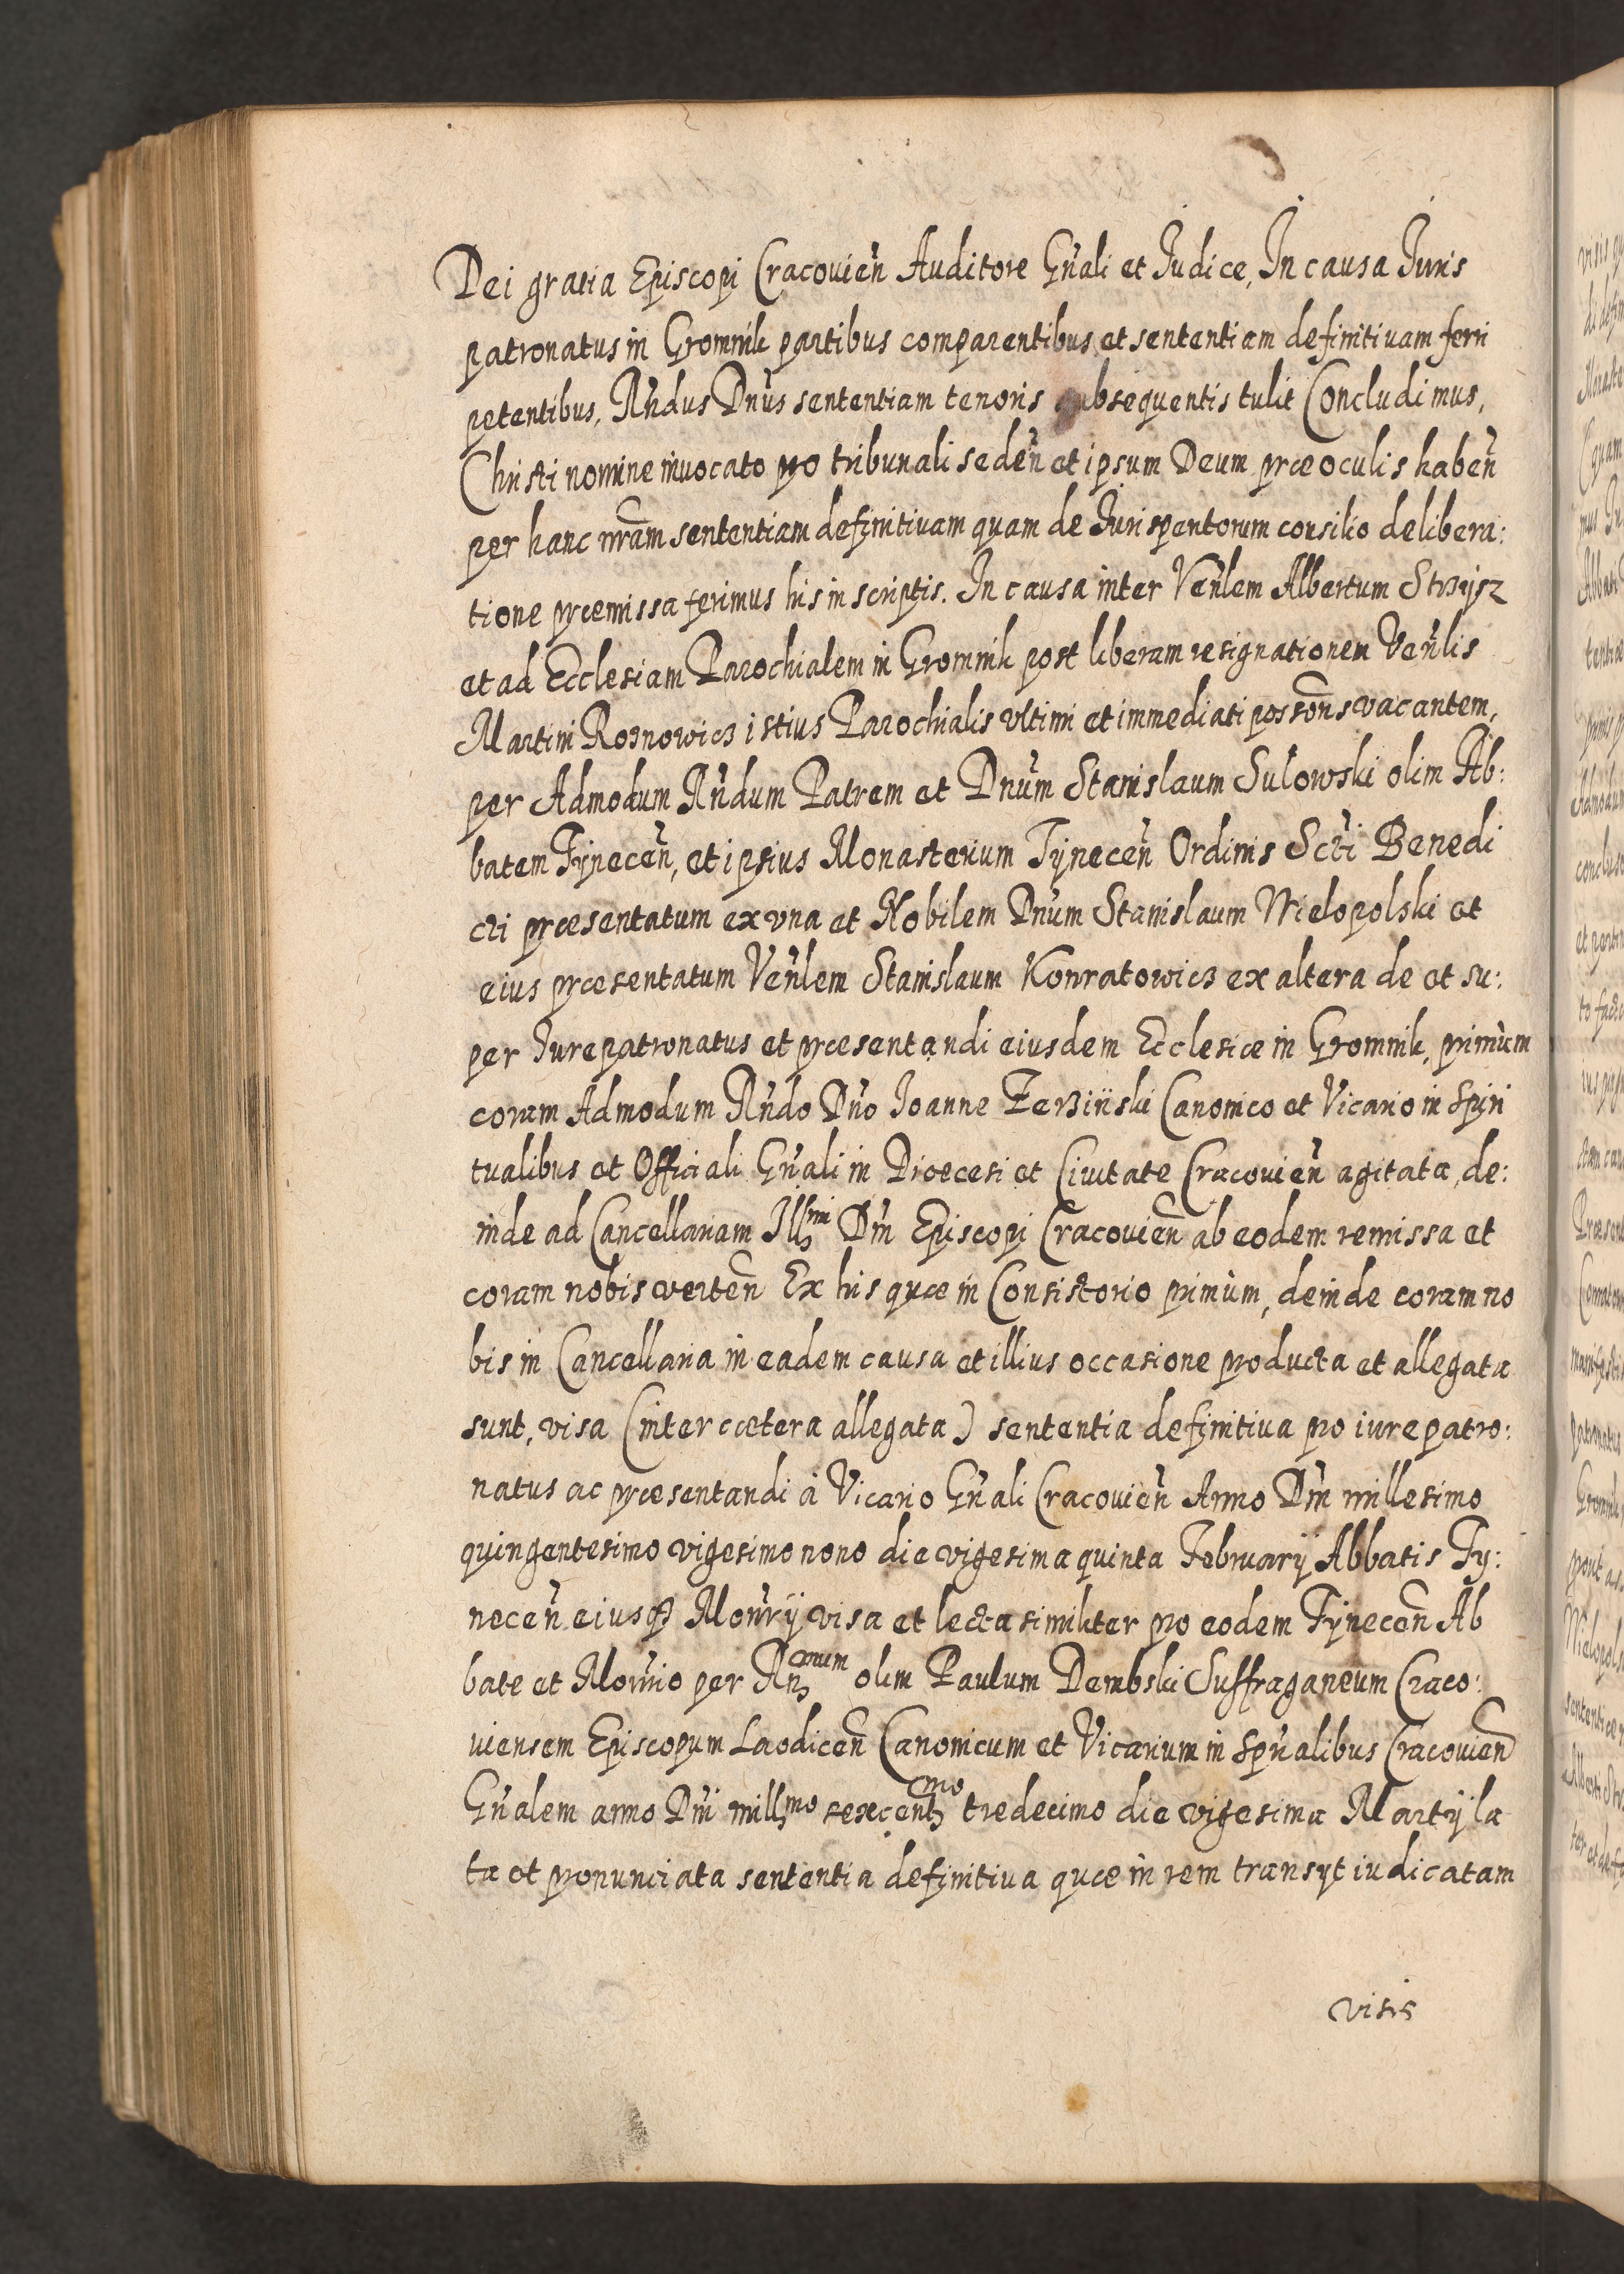 Dei gratia Episcopi Cracovien̄ Auditore Gn̄ali et Judice, In causa Juris
patronatus in Gromnik partibus comparentibus et sententiam definitiuam ferri
petentibus, Rn̄dus Dn̄us sententiam tenoris subsequentis tulit Concludimus,
Christi nomine inuocato pro tribunali seden̄ et ipsum Deum præ oculis haben̄
per hanc nr̄am sententiam definitiuam quam de Jurisperitorum consilio delibera:
tione præmissa ferimus his in scriptis. In causa inter Ven̄lem Albertum
et ad Ecclesiam Parochialem in Gromnik post liberam resignationem Ven̄lis
Martini Roznowicz istius Parochialis vltimi et immediati possōris vacantem,
per Admodum Rn̄dum Patrem et Dn̄um Stanislaum Sulowski olim Ab:
batem Tynecen̄, et ipsius Monasterium Tynecen̄ Ordinis Scti Benedi
cti præsentatum ex vna et Nobilem Dn̄um Stanislaum Wielopolski et
eius præsentatum Ven̄lem Stanislaum Konratowicz ex altera de et su:
per Jurepatronatus et præsentandi eiusdem Ecclesiæ in Gromnik, primùm
coram Admodum Rn̄do Dn̄o Joanne Canonico et Vicario in Spiri
tualibus et Officiali Gn̄ali in Diœcesi et Ciuitate Cracouien̄ agitata, de:
inde ad Cancellariam Illmi Dn̄i Episcopi Cracouien̄ ab eodem remissa et
coram nobis verten̄ Ex his quæ in Consistorio primùm, deinde coram no
bis in Cancellaria in eadem causa et illius occasione producta et allegata
sunt, visa (inter cætera allegata) sententia definitiua pro iurepatro:
natus ac præsentandi à Vicario Gn̄ali Cracouien̄ Anno Dn̄i millesimo
quingentesimo vigesimo nono die vigesima quinta February Abbatis Ty:
necen̄ eiusq3 Mon̄rij visa et lecta similiter pro eodem Tynecen̄ Ab
bate et Mon̄rio per Rn̄mum olim Paulum Dembski Suffraganeum Craco:
uiensem Episcopum Laodicen̄ Canonicum et Vicarium in Spn̄alibus Cracouien̄
Gn̄alem anno Dn̄i millmo sexcentmo tredecimo die vigesima Martij la
ta et pronunciata sententia definitiua quæ in rem transyt iudicatam
visis